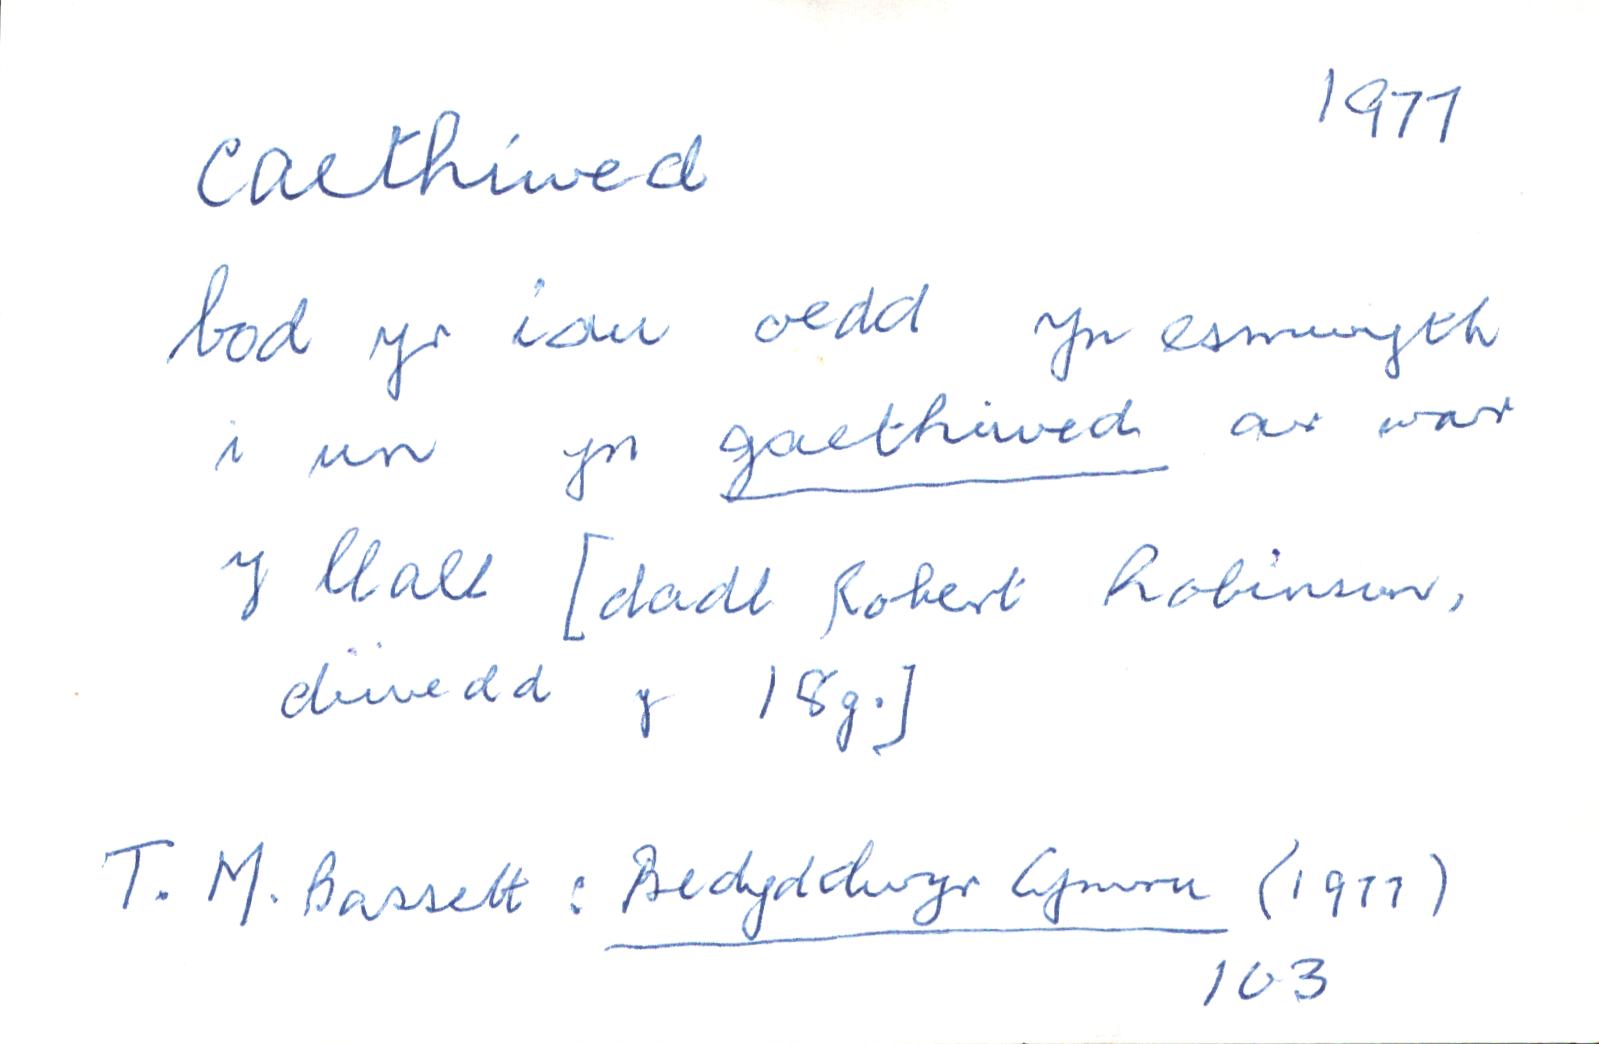 1977
caethiwed
bod yr iau oedd yn esmwyth
i un yn gaethiwed ar war
y llall [dadl Robert Robinson,
diwedd y 18g.]
T. M. Bassett : Bedyddwyr Cymru (1977)
103